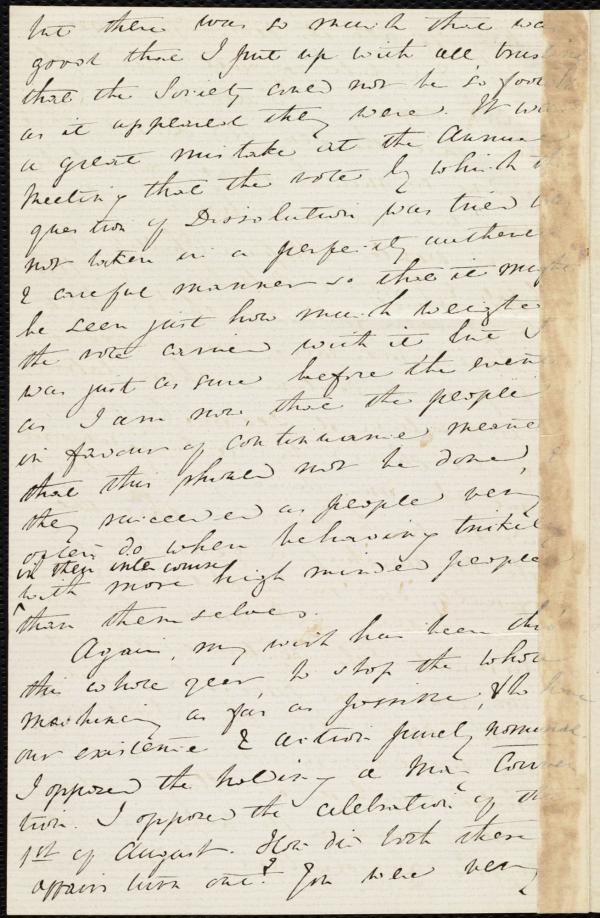 but there was so much that was
good that I put up with all, trusting
that the Society could not be so foolish
as it appeared they were. It was
a great mistake at the Annual
Meeting that the vote by which the
question of Dissolution was tried
not taken in a perfectly authentic
& careful manner so that it might
be seen just how much weight
the vote carried with it but I
was just as sure before the event
as I am now, that the people
in favour of continuance meant
that this should not be done,
they succeeded as people very
often do when behaving trickily
in their intercourse
with more high minded people
than themselves.
Again, my wish has been this
this whole year, to stop the whole
machinery as far as possible, & to have
our existence & action purely nominal.
I opposed the holding a May Conven
tion. I opposed the celebration of the
1st of August. How did both these
affairs turn out? You were very